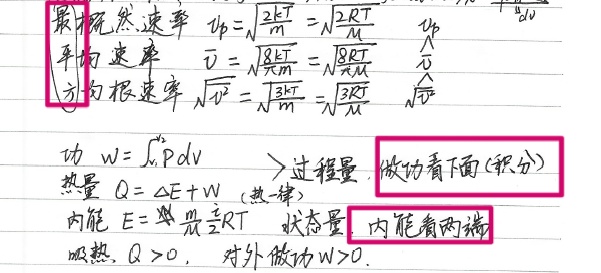 dv
最概然速率 υp=√(2kT/m)=√(2RT/M) υp
∧
平均速率 ῡ=√(8kT/πm)=√(8RT/πM) ῡ
∧
方均根速率 √(ῡ²)=√(3kT/m)=√(3RT/M) √(ῡ²)
功 W=∫_{V₁}^{V₂} P dV >过程量. 做功看下面(积分)
热量 Q=ΔE+W (热一律)
内能 E= m/M i/2 RT 状态量. 内能看两端
吸热, Q>0, 对外做功W>0.